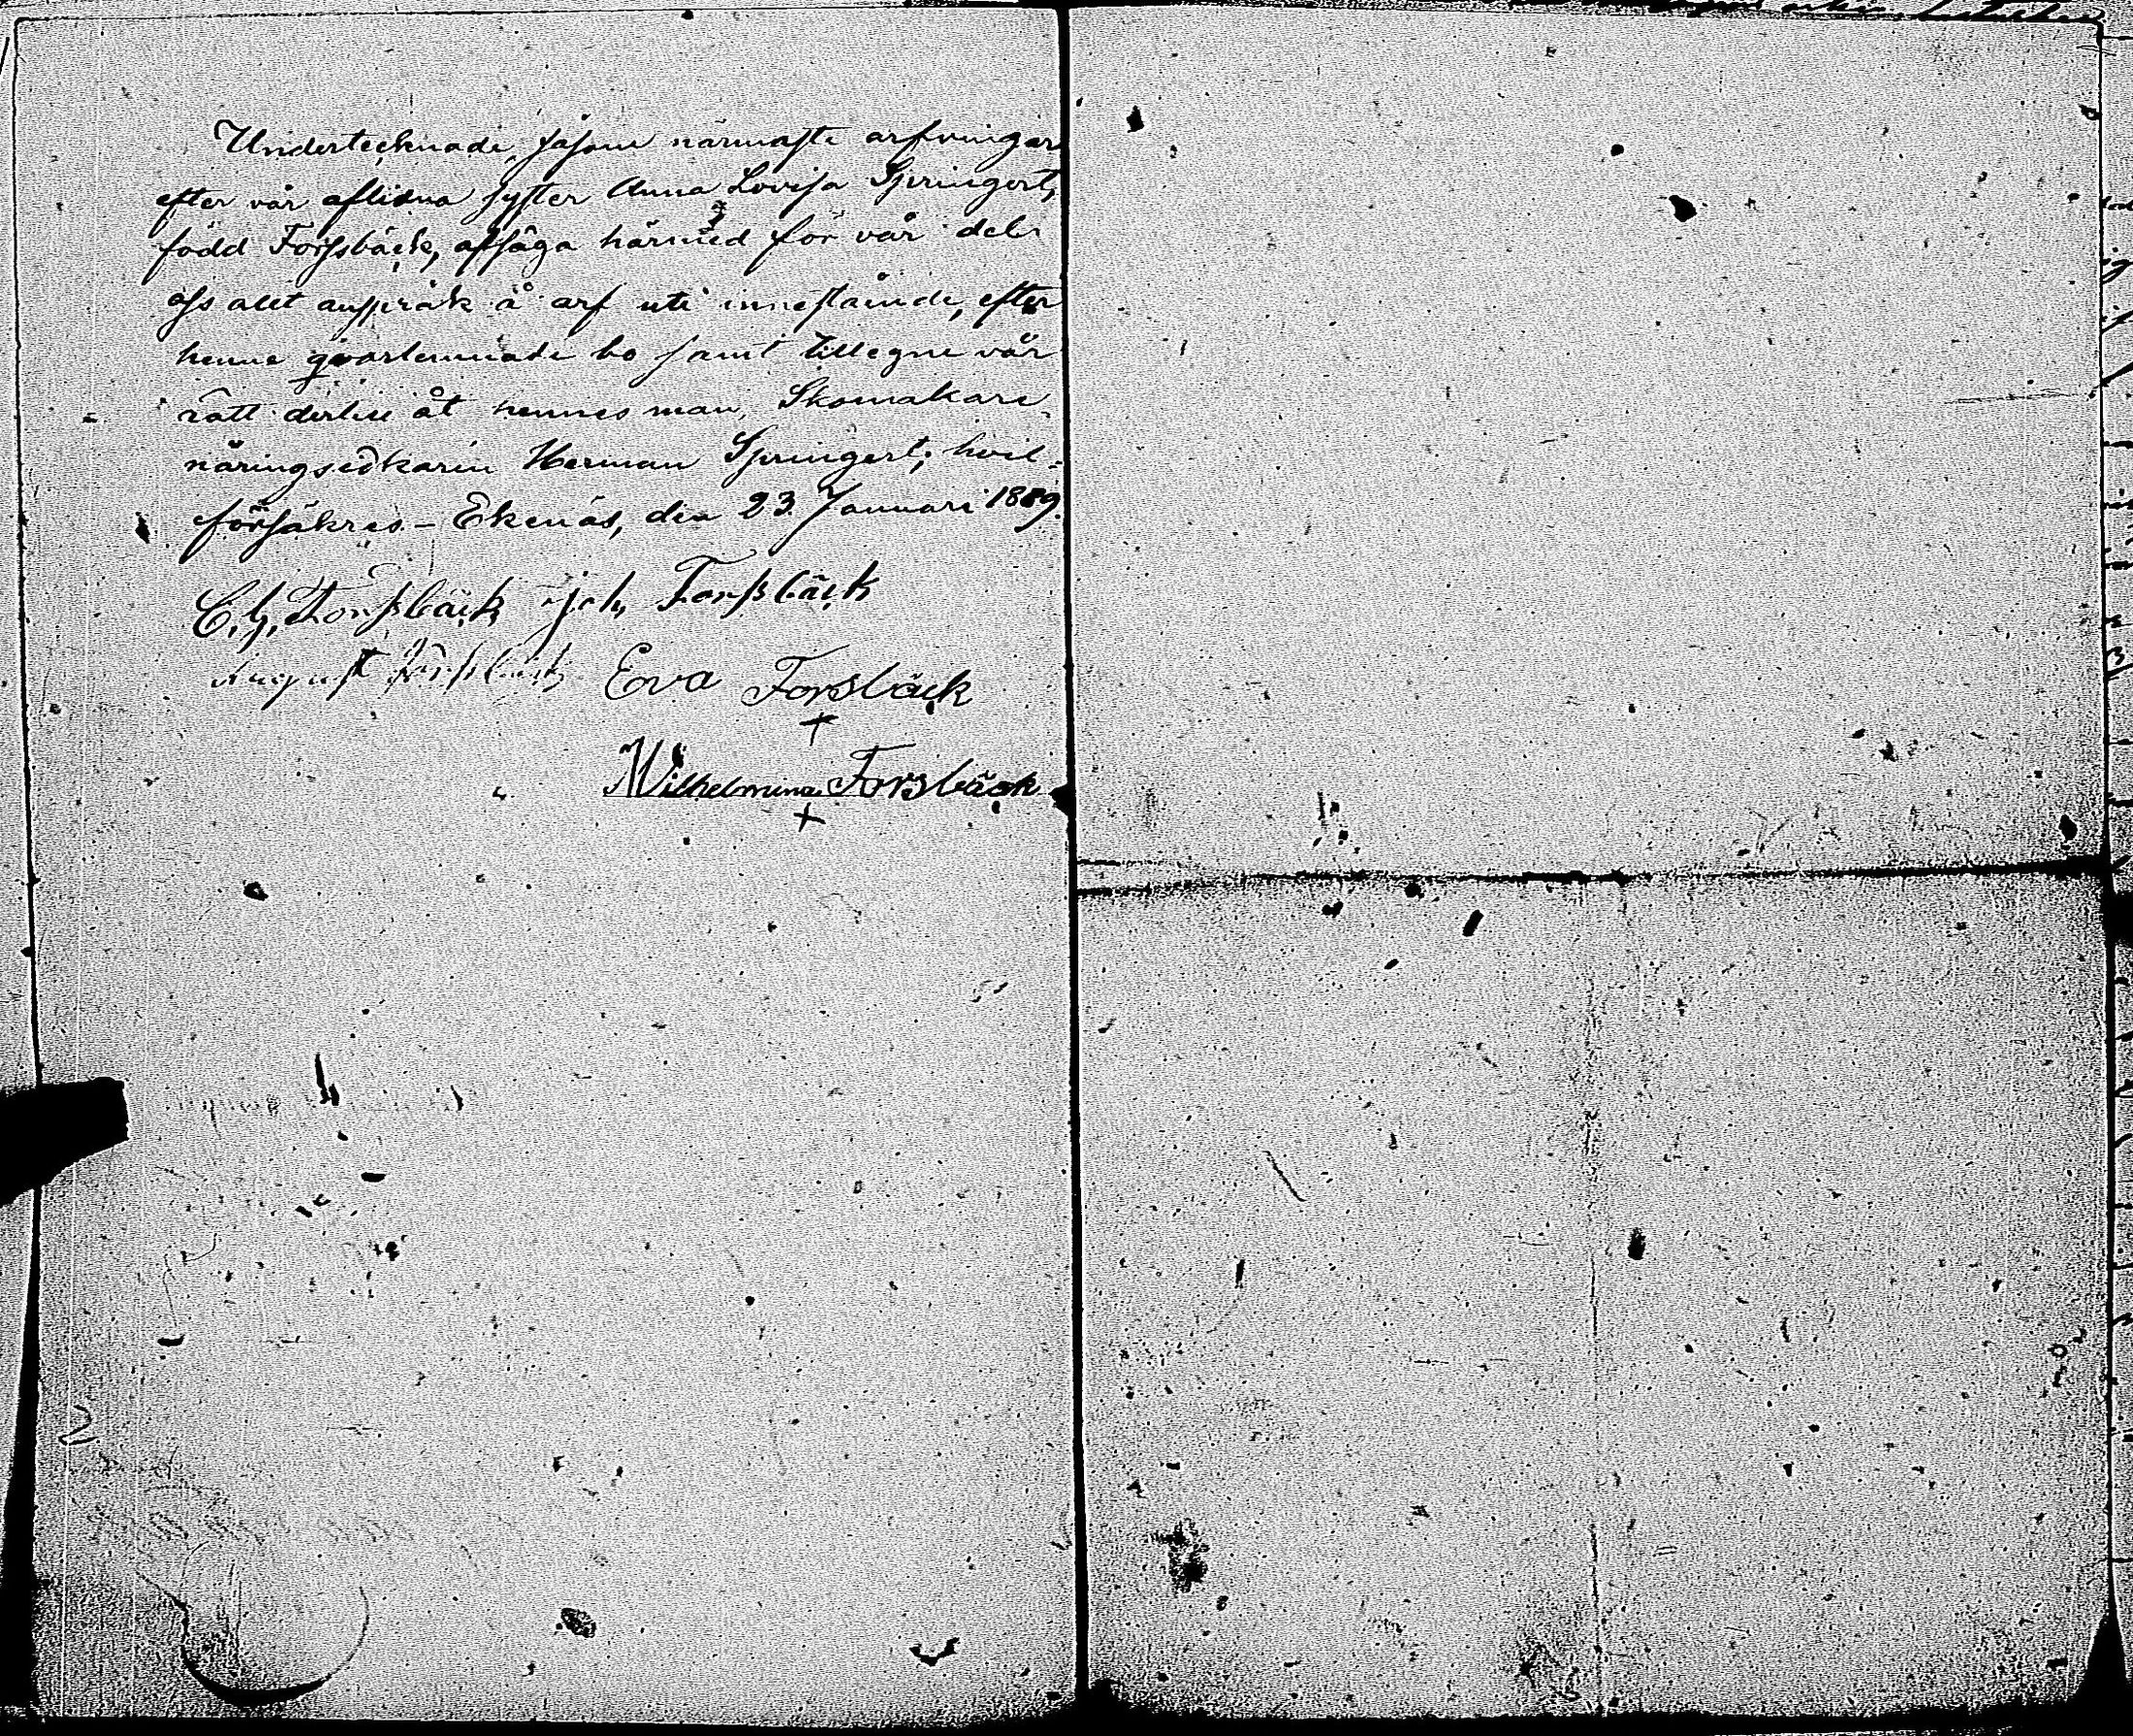 Undertecknade såsom närmaste arfvingar
efter vår aflidna syster Anna Lovisa Springert,
född Forssbäck, afsäga härmed för vår del
oss allt anspråk å arf uti innestående, efter
henne qvarlemnade bo samt tillegne vår
rätt dertill åt hennes man, Skomakare-
näringsidkaren Herman Springert; hvil-
försäkras. – Ekenäs, den 23 Januari 1889.
C. G. Forssbäck Joh. Forssbäck
August Forssbäck Eva Forsbäck
+
Wilhelmina Forsbäck
+